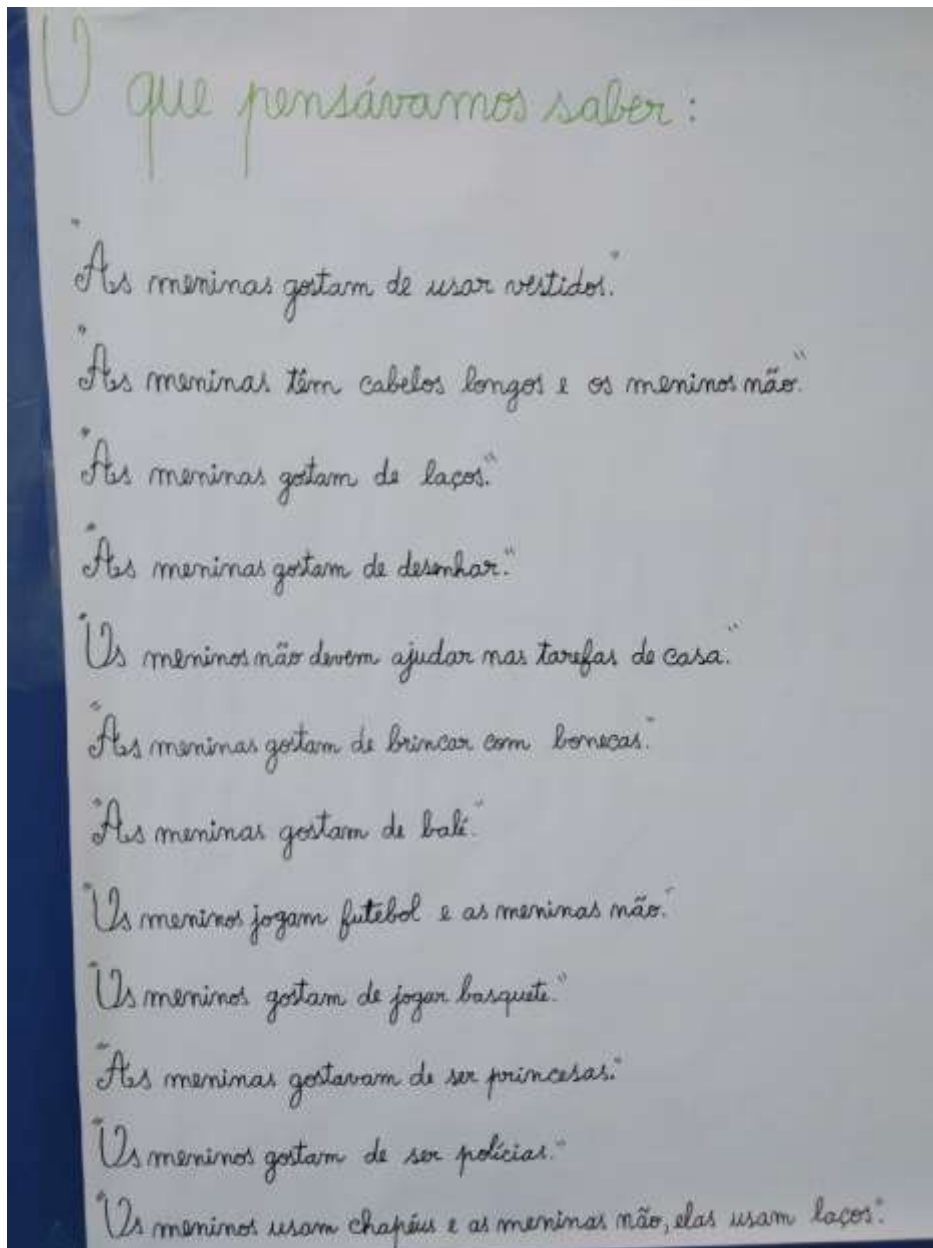 O que pensávamos saber:
"As meninas gostam de usar vestidos."
"As meninas têm cabelos longos e os meninos não."
"As meninas gostam de laços."
"As meninas gostam de desenhar."
"Os meninos não devem ajudar nas tarefas de casa."
"As meninas gostam de brincar com bonecas."
"As meninas gostam de balé."
"Os meninos jogam futebol e as meninas não."
"Os meninos gostam de jogar basquete."
"As meninas gostavam de ser princesas."
"Os meninos gostam de ser polícias."
"Os meninos usam chapéus e as meninas não, elas usam laços".